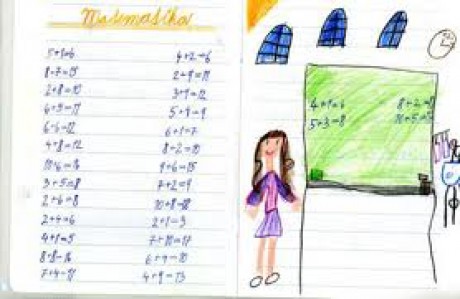 Matematika
5+1=6
8+7=15
2+8=10
6+5=11
6+6=12
4+8=12
10+6=16
3+5=8
2+6=8
2+4=6
4+1=5
8+8=16
7+4=11
4+2=6
2+9=11
3+9=12
5+4=9
6+1=7
8+2=10
9+6=15
7+2=9
10+8=18
2+1=3
7+10=17
6+4=10
4+9=13
5+3=8